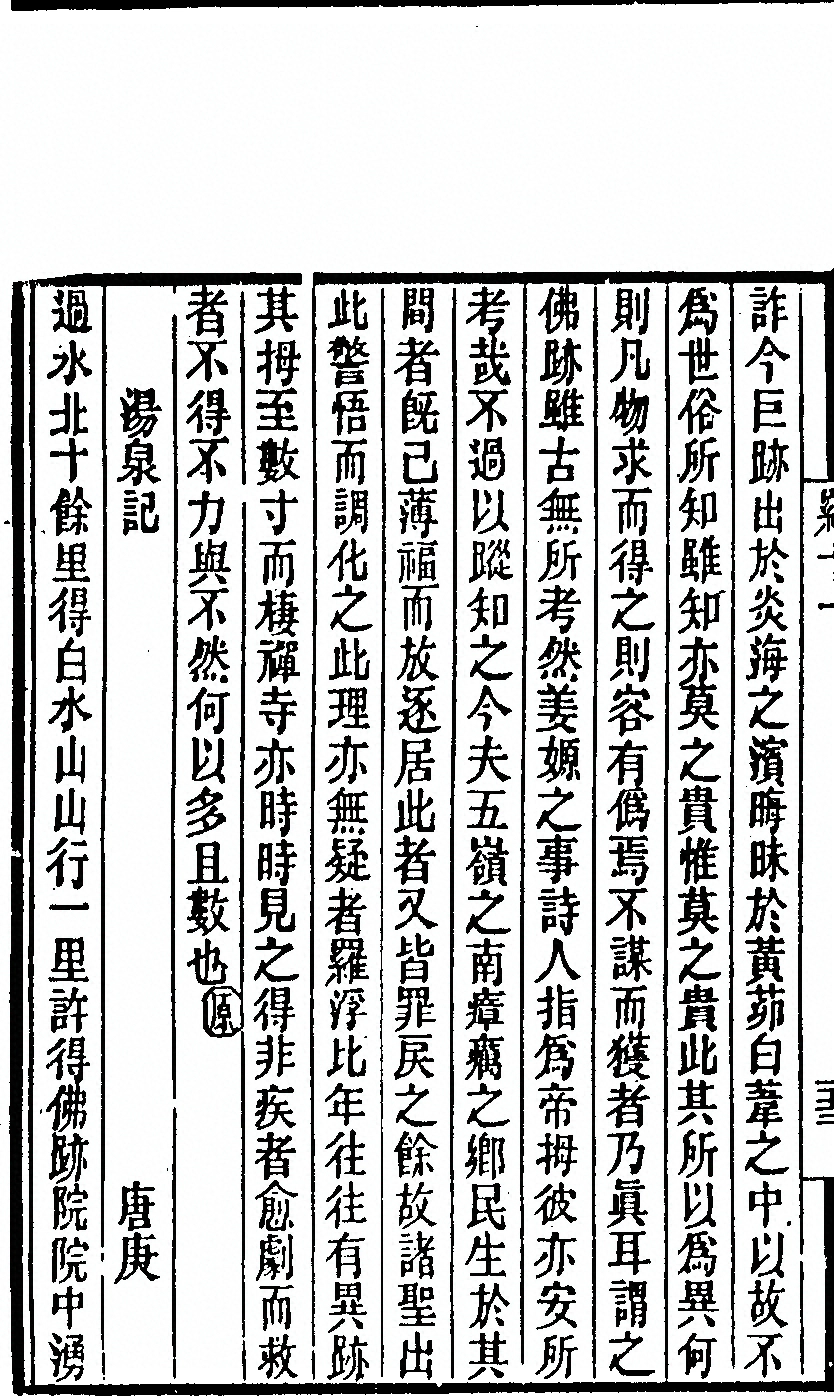 詐今巨跡出於炎海之濱晦昧於黃茆白葦之中以故不
爲世俗所知雖知亦莫之貴惟莫之貴此其所以爲異何
則凡物求而得之則容有僞焉不謀而獲者乃眞耳謂之
佛跡雖古無所考然姜嫄之事詩人指爲帝拇彼亦安所
考哉不過以蹤知之今夫五嶺之南瘴癘之鄉民生於其
間者旣已薄福而放逐居此者又皆罪戾之餘故諸聖出
此警悟而調化之此理亦無疑者羅浮比年往往有異跡
其拇至數寸而棲禪寺亦時時見之得非疾者愈劇而救
者不得不力與不然何以多且數也原
湯泉記 唐庚
過水北十餘里得白水山山行一里許得佛跡院院中湧